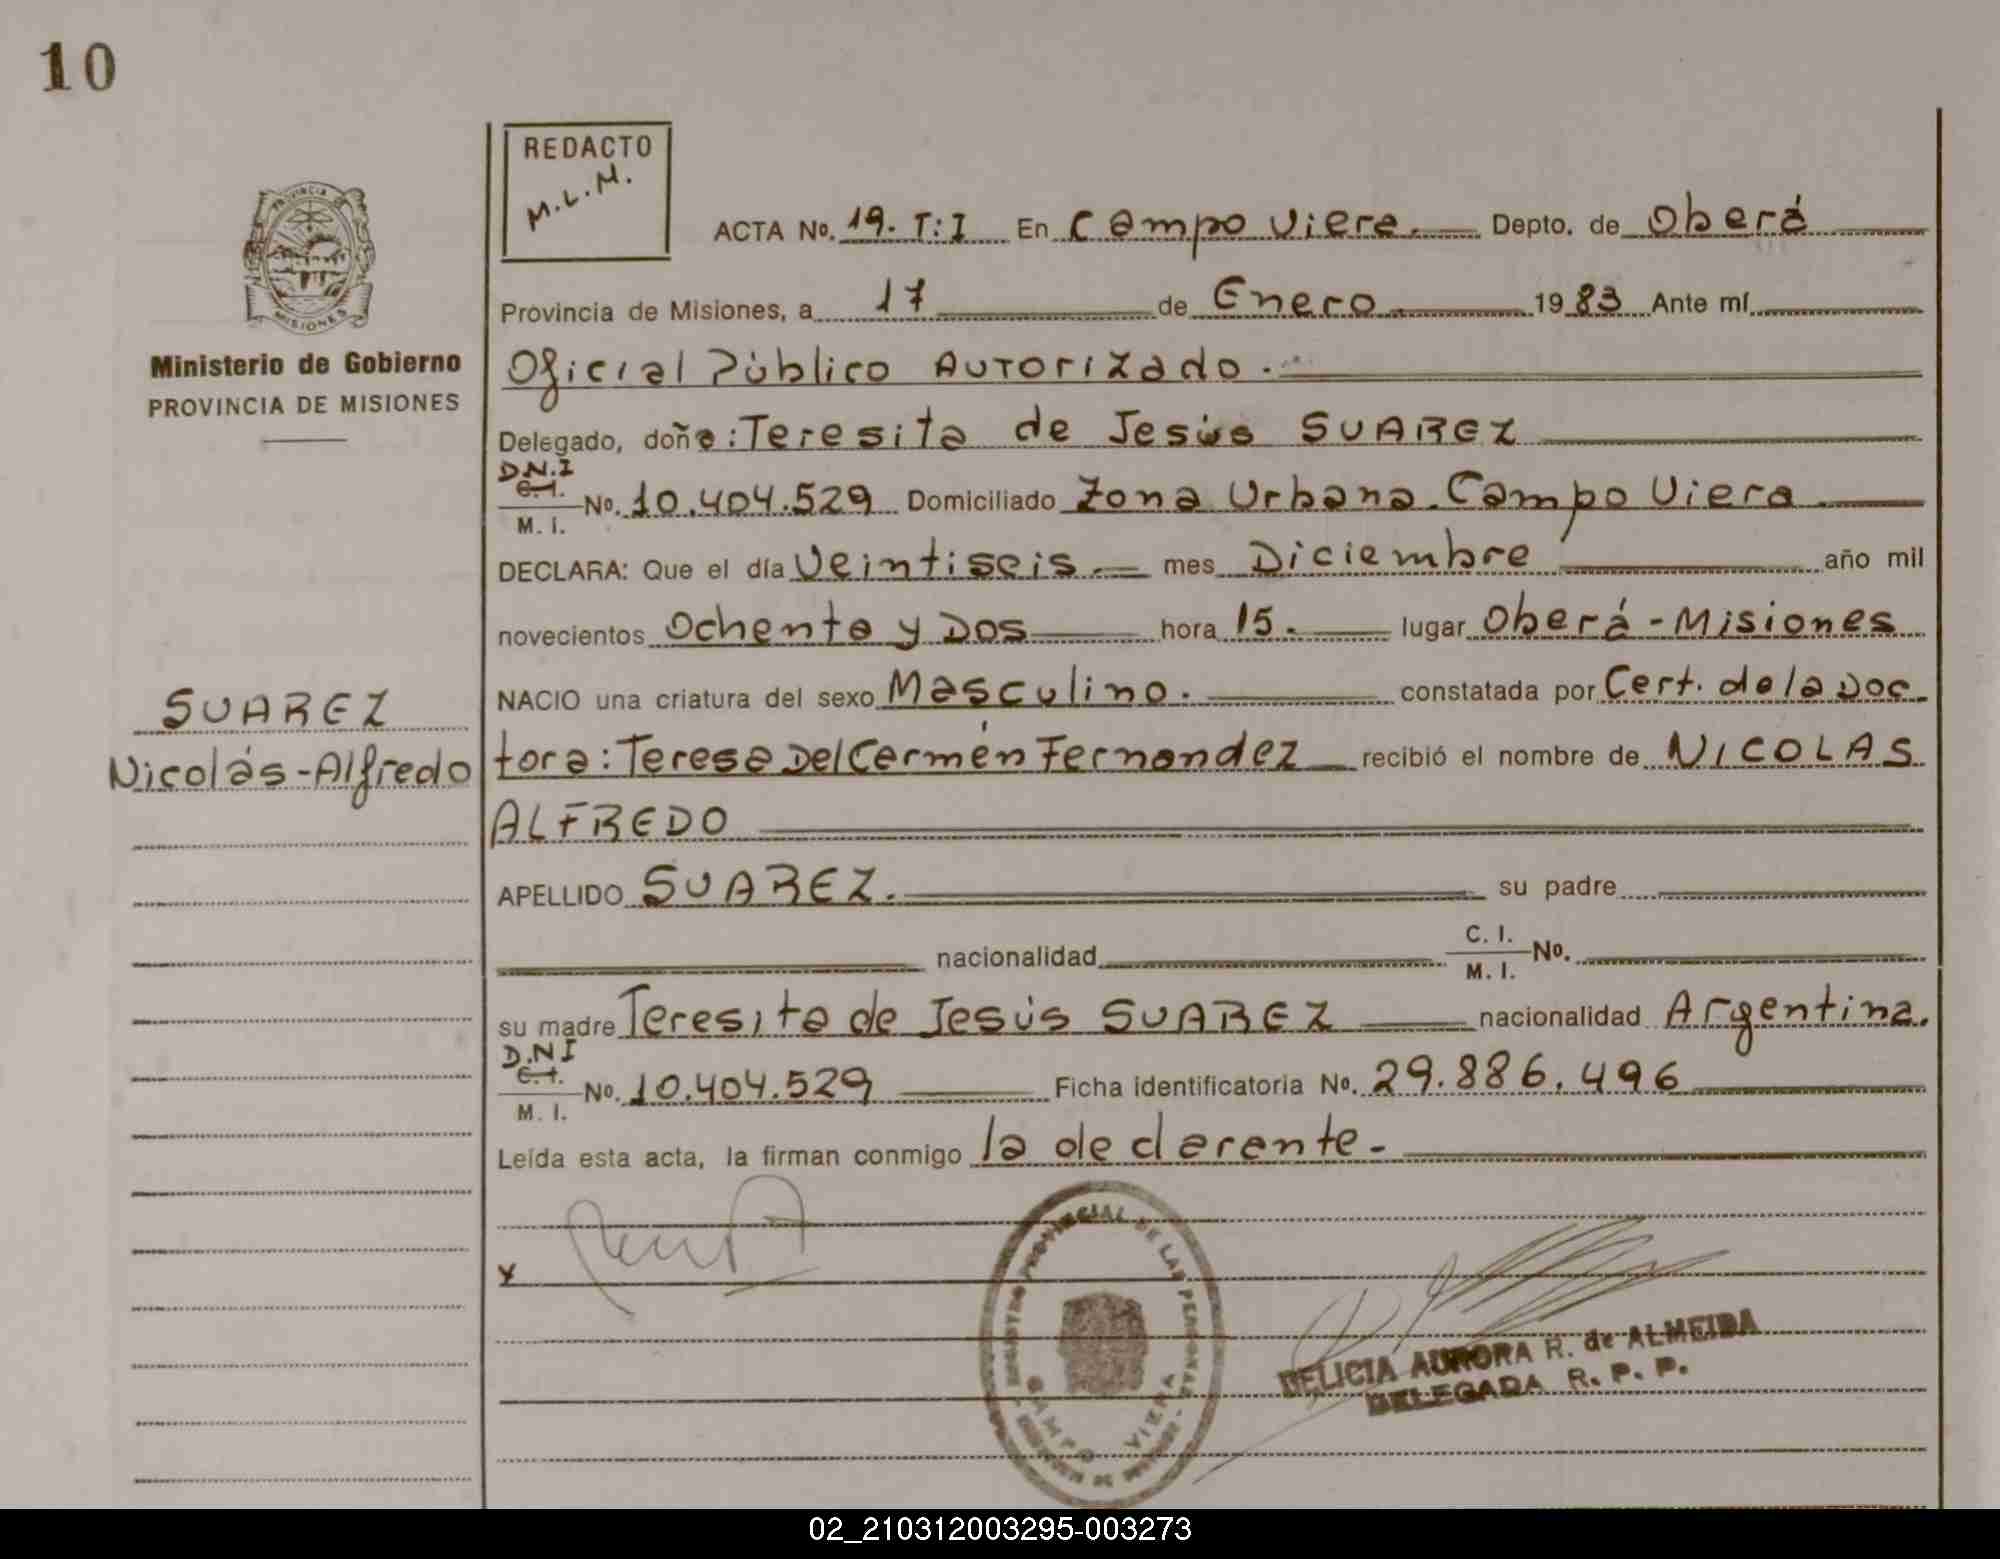 10
REDACTO
M.L.M.
PROVINCIA DE
MISIONES
Ministerio de Gobierno
PROVINCIA DE MISIONES
SUAREZ
Nicolás-Alfredo
ACTA No. 19. T:I En Campo Viera. Depto. de Oberá
Provincia de Misiones, a 17 de Enero 1983 Ante mí
Oficial Público Autorizado.
Delegado, doña: Teresita de Jesús SUAREZ
D.N.I
C.I.
M. I. No. 10.404.529 Domiciliado Zona Urbana. Campo Viera
DECLARA: Que el día Veintiseis.- mes Diciembre año mil
novecientos Ochenta y Dos hora 15. lugar Oberá - Misiones
NACIO una criatura del sexo Masculino. constatada por Cert. de la Doc
tora: Teresa Del Carmen Fernandez recibió el nombre de NICOLAS
ALFREDO
APELLIDO SUAREZ. su padre
nacionalidad C. I. M. I. No.
su madre Teresita de Jesús SUAREZ nacionalidad Argentina.
D.N.I
C.I.
M. I. No. 10.404.529 Ficha identificatoria No. 29.886.496
Leída esta acta, la firman conmigo la declarente.-
x
REGISTRO PROVINCIAL DE LAS PERSONAS
CAMPO VIERA
DELICIA AURORA R. de ALMEIDA
DELEGADA R. P. P.
02_210312003295-003273